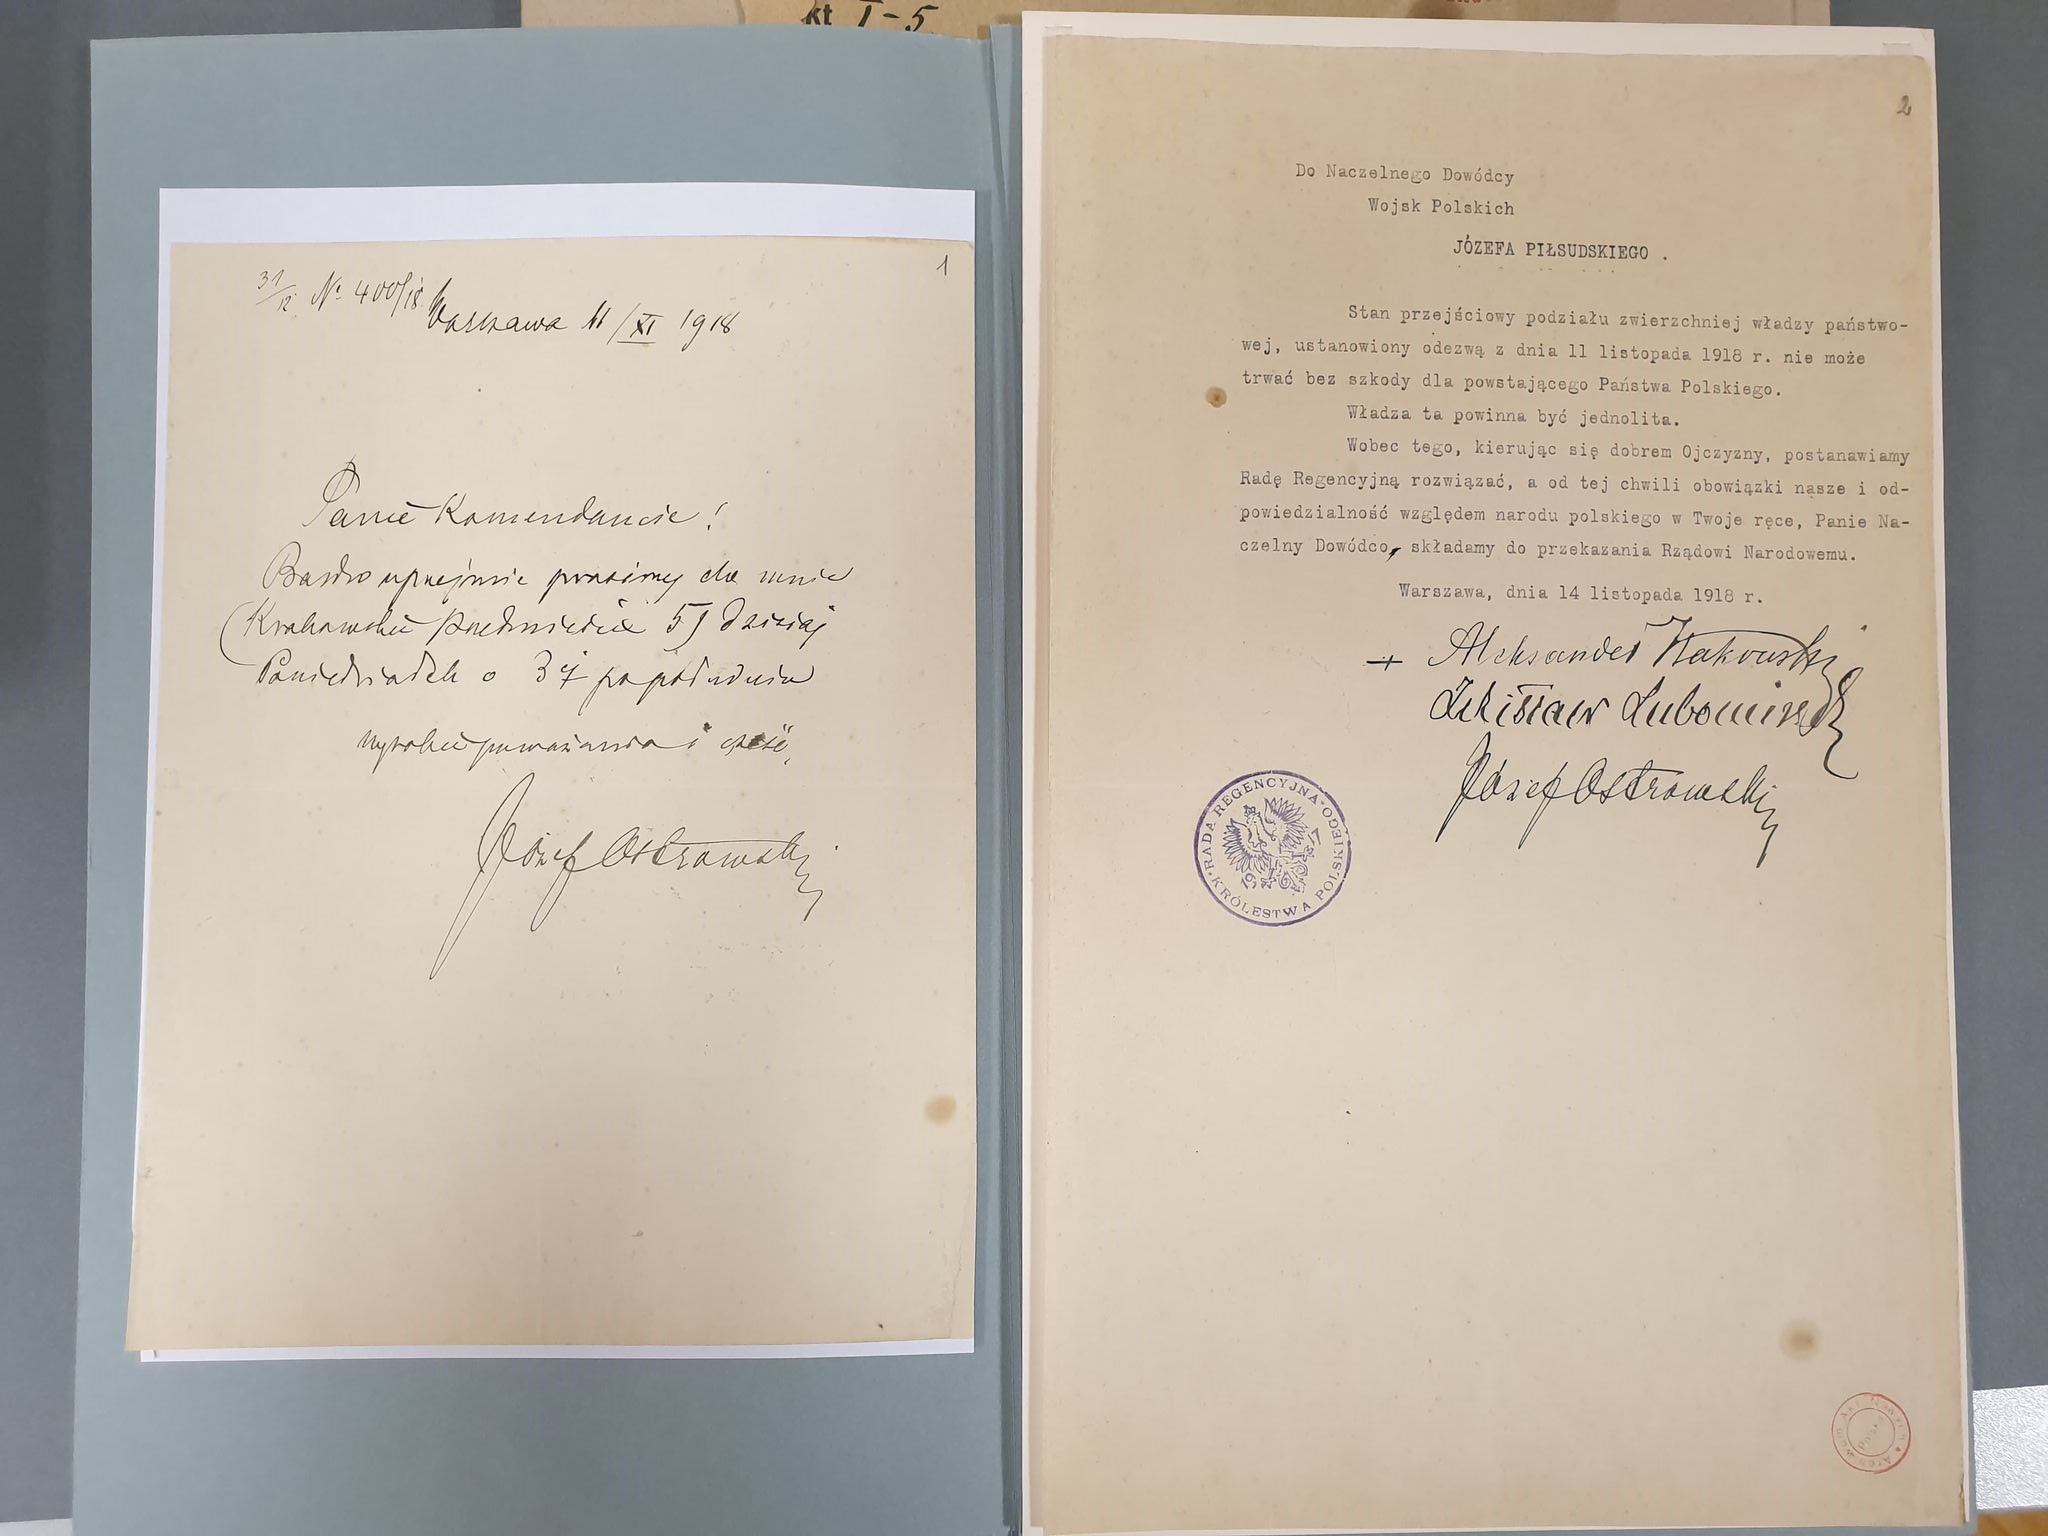 kt I-5
1
31/12 № 400/18
Warszawa 11/XI 1918
Panie Komendancie!
Bardzo uprzejmie prosimy do mnie
(Krakowskie Przedmieście 5) dzisiaj
Poniedziałek o 3ej popołudniu
wysokie poważanie i cześć,
Józef Ostrowski
2
Do Naczelnego Dowódcy
Wojsk Polskich
JÓZEFA PIŁSUDSKIEGO .
Stan przejściowy podziału zwierzchniej władzy państwo-
wej, ustanowiony odezwą z dnia 11 listopada 1918 r. nie może
trwać bez szkody dla powstającego Państwa Polskiego.
Władza ta powinna być jednolita.
Wobec tego, kierując się dobrem Ojczyzny, postanawiamy
Radę Regencyjną rozwiązać, a od tej chwili obowiązki nasze i od-
powiedzialność względem narodu polskiego w Twoje ręce, Panie Na-
czelny Dowódco, składamy do przekazania Rządowi Narodowemu.
Warszawa, dnia 14 listopada 1918 r.
+ Aleksander Kakowski
Zdzisław Lubomirski
Józef Ostrowski
RADA REGENCYJNA
KRÓLESTWA POLSKIEGO
19 17